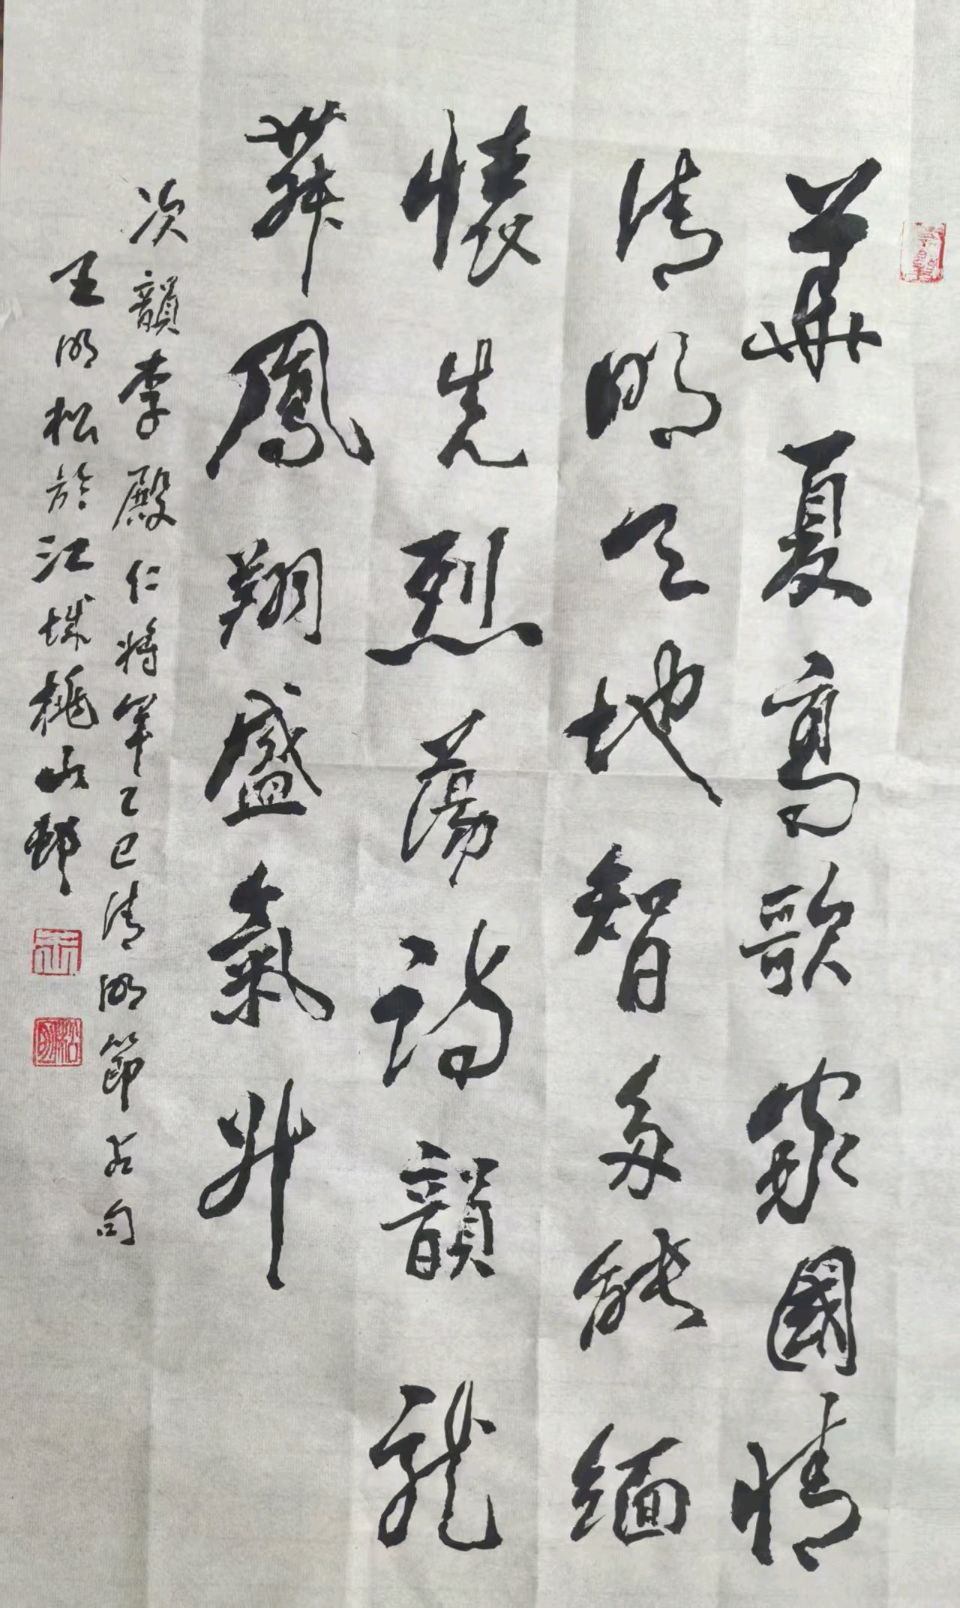 華夏高歌家國情
清明天地智多能緬
懷先烈蕩詩韻龍
舞鳳翔盛氣升
次韻李殿仁將軍乙巳清明節占句
王明松於江城桃山邨